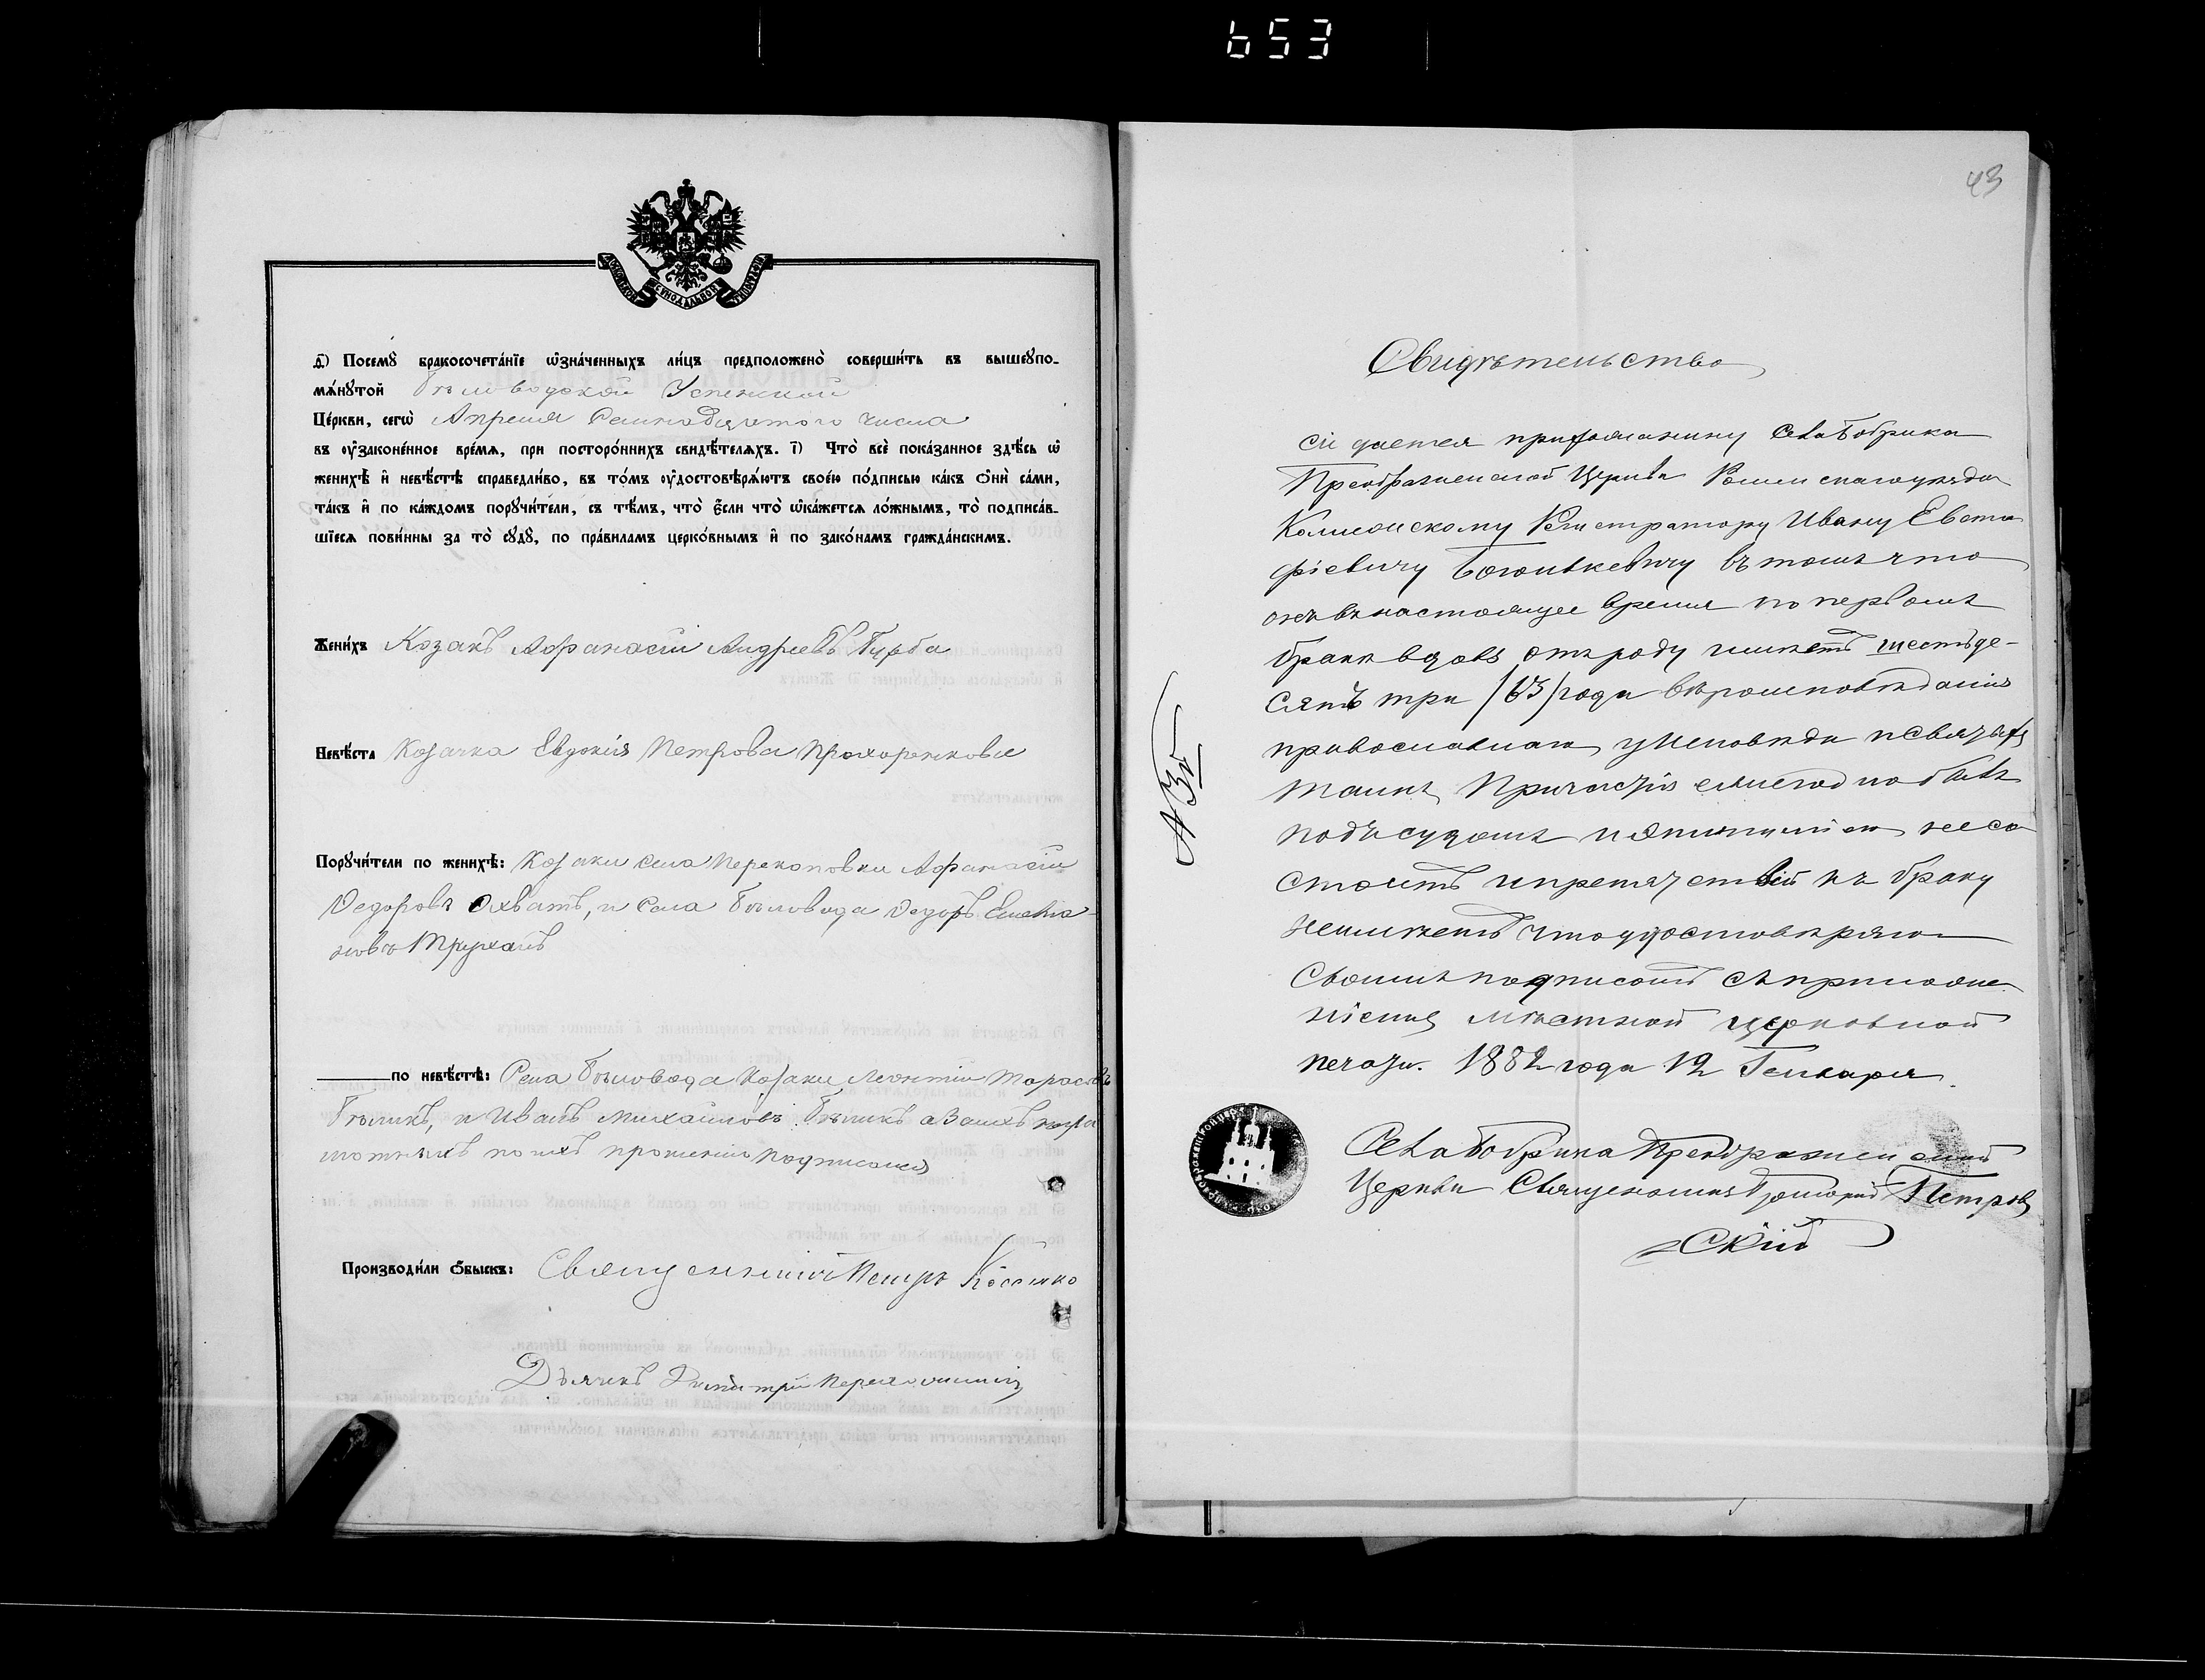 653
43
МОСКОВСКОЙ СѴНОДАЛЬНОЙ ТИПОГРАФІИ
д҃) Посемꙋ̀ бракосочета́нїе ѡ҆зна́ченныхъ ли́цъ предположено̀ соверши́ть въ вышеꙋпо-
мѧ́нꙋтой Бѣловодской Успенской
Це́ркви, сегѡ̀ Апреля Семнадцатого числа
въ ᲂу҆законе́нное вре́мѧ, при посторо́ннихъ свидѣ́телѧхъ. і҃) Что̀ всѐ пока́занное здѣ́сь ѡ҆
женихѣ̀ и҆ невѣ́стѣ справедли́во, въ то́мъ ᲂу҆достовѣрѧ́ютъ свое́ю по́дписью ка́къ ѻ҆нѝ са́ми,
та́къ и҆ по ка́ждомъ порꙋчи́тели, съ тѣ́мъ, что̀ є҆́сли что̀ ѡ҆ка́жетсѧ ло́жнымъ, то̀ подписа́в-
шїесѧ пови́нны за то̀ сꙋдꙋ̀, по пра́виламъ церко́внымъ и҆ по зако́намъ гражда́нскимъ.
Жени́хъ Козакъ Афранасій Андреевъ Турба
Невѣ́ста Козачка Евдокія Петрова Прохоренкова
Порꙋчи́тели по женихѣ̀: Козаки села Перекоповки Афранасій
Ѳедоровъ Охватъ, и села Бѣловода Ѳедоръ Емелья-
новъ Труханъ
по невѣ́стѣ: Села Бѣловода Козаки Леонтій Тарасовъ
Бѣликъ, и Иванъ Михайловъ Бѣликъ а за ихъ негра
мотныхъ по ихъ прошенію подписался
Производи́ли ѻ҆́быскъ: Священникъ Петръ
Дьячекъ Димитрій
Свидѣтельство
сіе дается прихожанину села Бобрика
Преображенской Церкви Роменскаго уѣзда
Колежскому Регистратору Ивану Евста
фіевичу въ томъ что
онъ въ настоящее время по первомъ
бракѣ вдовъ отъ роду имѣетъ шестьде-
сятъ три /63/ года вѣроисповѣданія
православнаго, у Исповѣди и Святыхъ
Таинъ Причастія ежегодно бывъ
подъ судомъ и не со
стоитъ и препятствій къ браку
неимѣетъ что удостовѣряю
своимъ подписомъ съ приложе
ніемъ мѣстной церковной
печати. 1882 года 12 Генваря.
№ 3й
Села Бобрика Преображенской
Церкви Священникъ Григорій Петров
скій